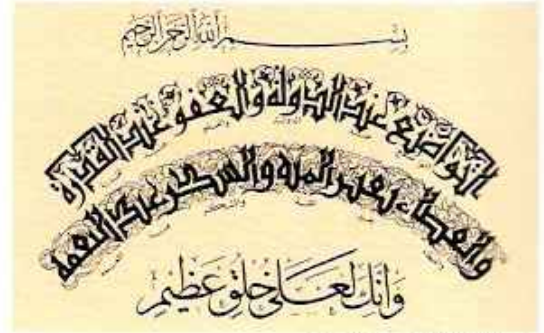 بسم الله الرحمن الرحيم
التواضع عند الدولة والعفو عند القدرة
والعطاء بغير المنة والشكر عند النعمة
وإنك لعلى خلق عظيم